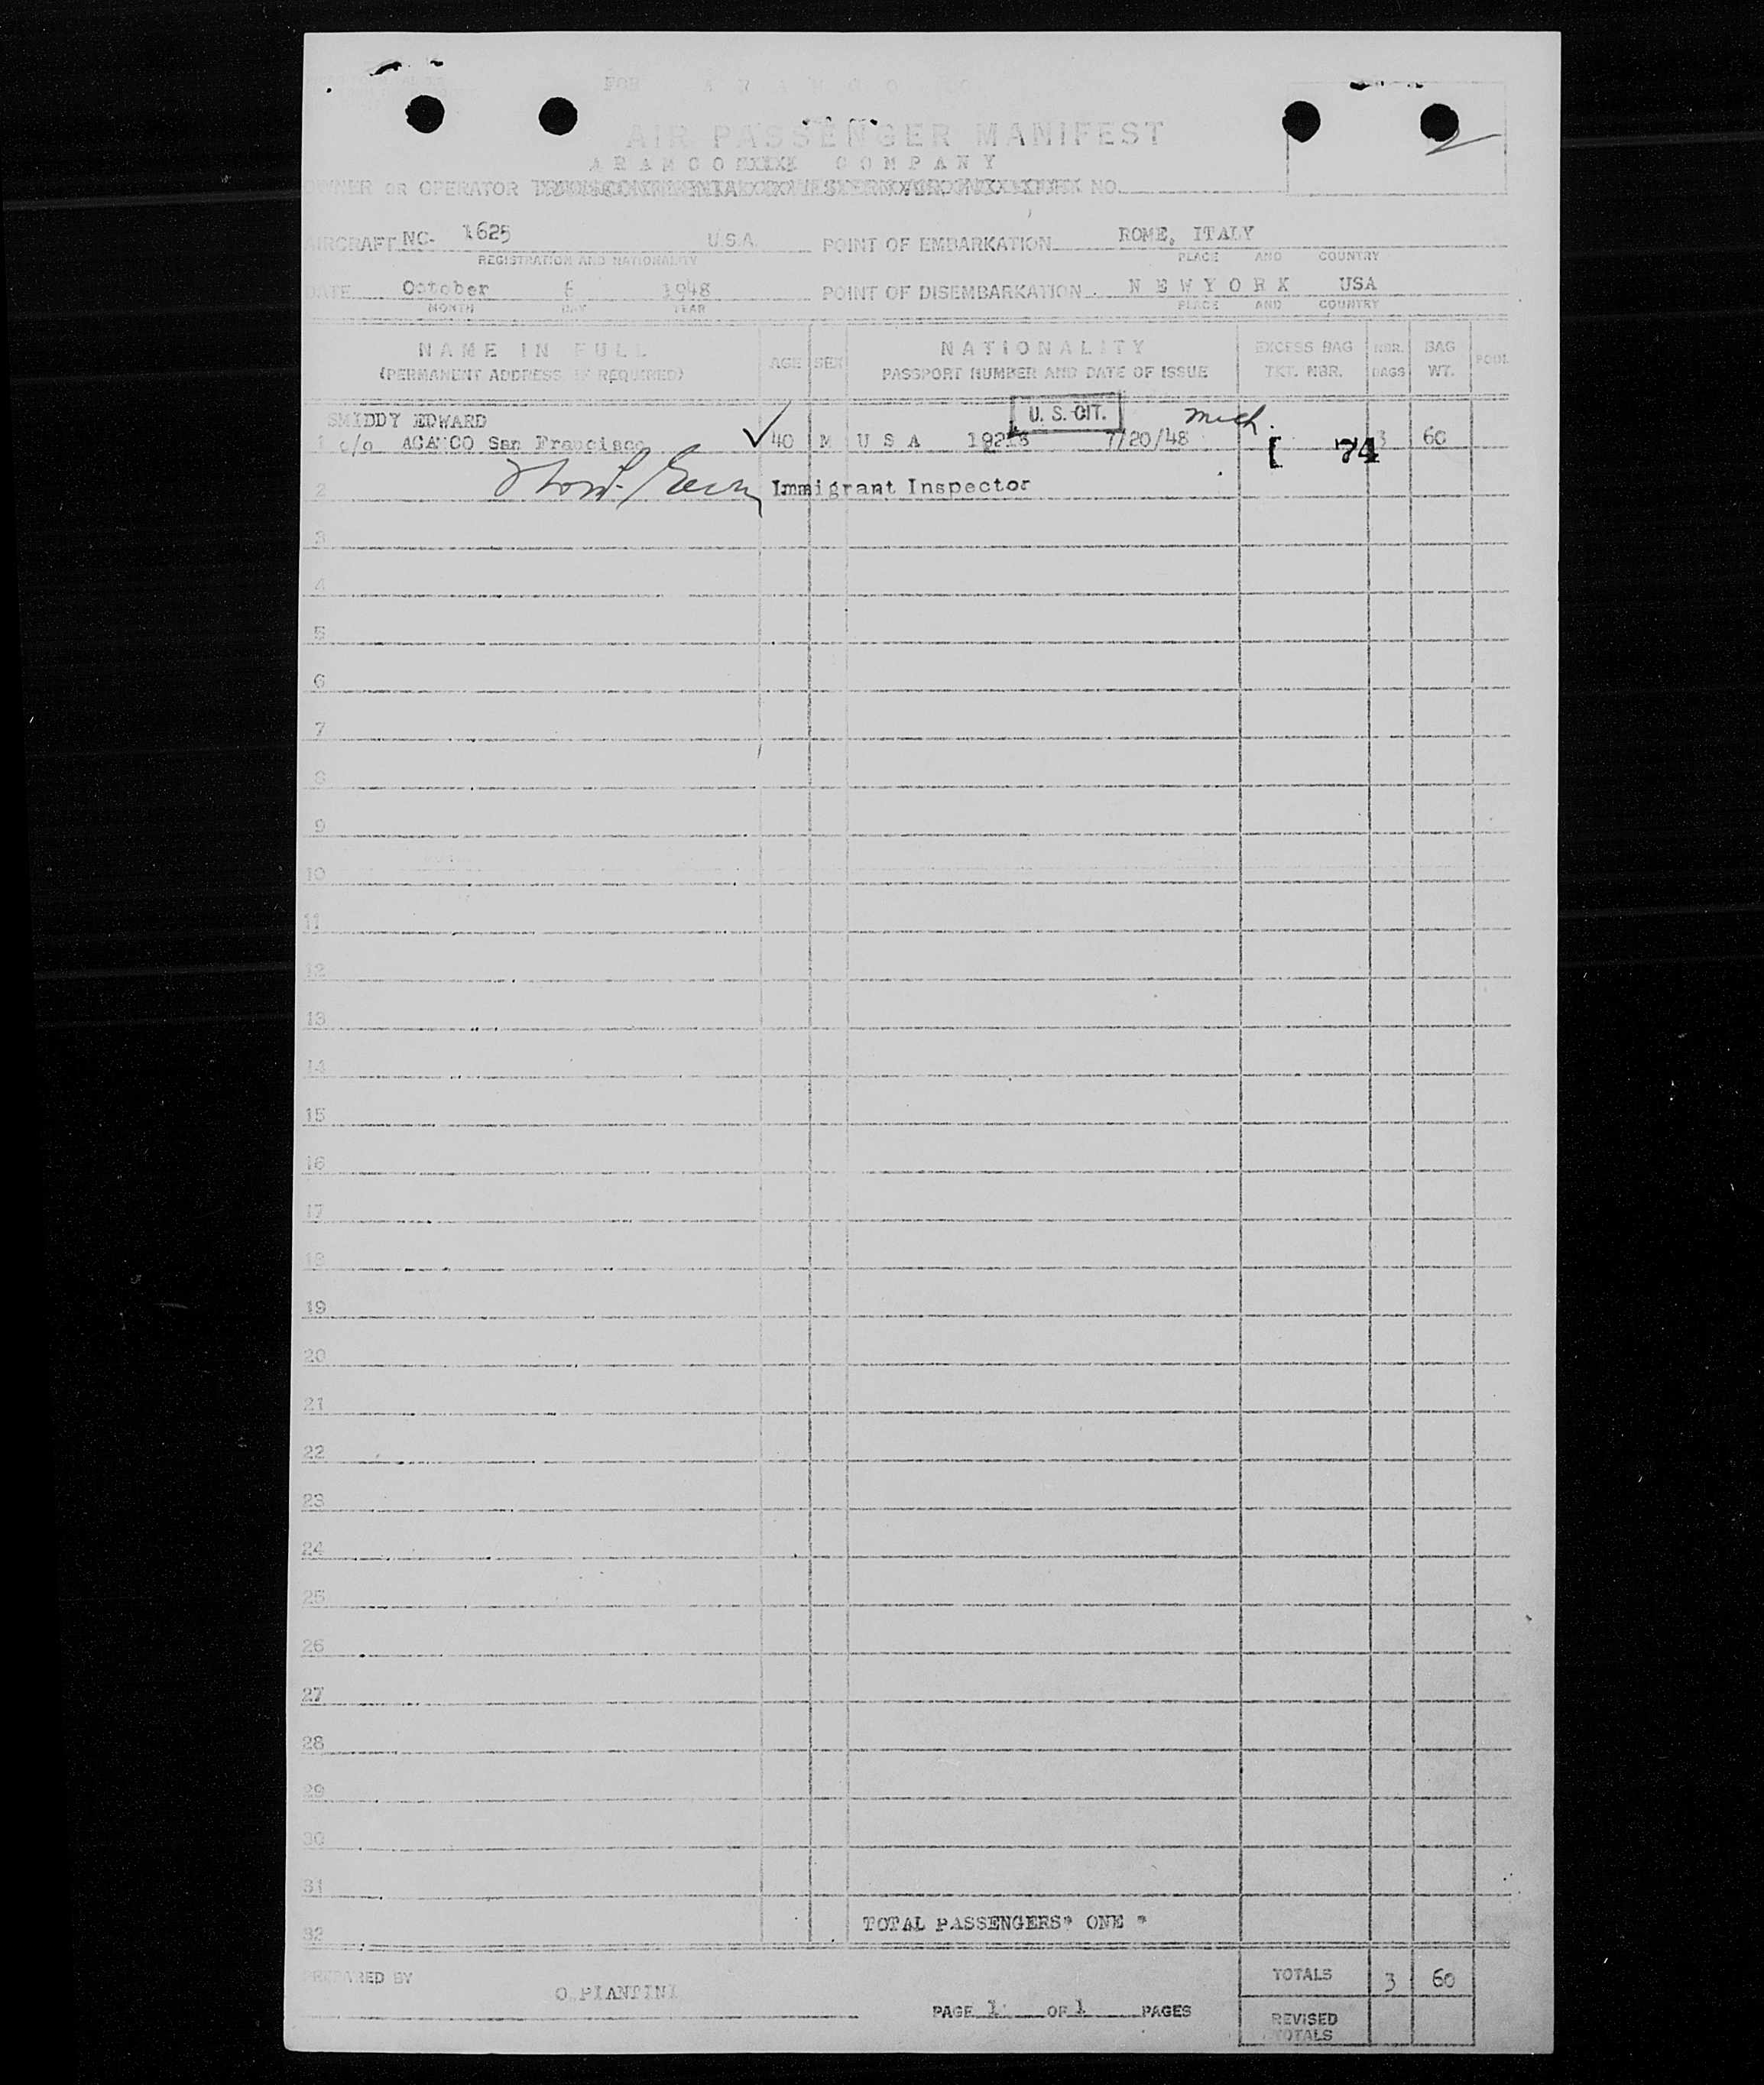 FOR A R A M C O
AIR PASSENGER MANIFEST
A R A M C O C O M P A N Y
OWNER OR OPERATOR NO.
2
AIRCRAFT NC- 1625 U.S.A. POINT OF EMBARKATION ROME, ITALY
REGISTRATION AND NATIONALITY PLACE AND COUNTRY
DATE October 1948 POINT OF DISEMBARKATION N E W Y O R K USA
MONTH DAY YEAR PLACE AND COUNTRY
NAME IN FULL AGE SEX NATIONALITY EXCESS BAG NBR. BAG
(PERMANENT ADDRESS IF REQUIRED) PASSPORT NUMBER AND DATE OF ISSUE TKT. NBR. BAGS WT.
SMIDDY EDWARD U. S. CIT. Mich.
1 c/o San Francisco 40 M U S A 7/20/48 [ 74 3 60
2 Immigrant Inspector
3
4
5
6
7
8
9
10
11
12
13
14
15
16
17
18
19
20
21
22
23
24
25
26
27
28
29
30
31
32 TOTAL PASSENGERS* ONE *
PREPARED BY O.PIANTINI
TOTALS 3 60
PAGE 1 OF 1 PAGES
REVISED
TOTALS